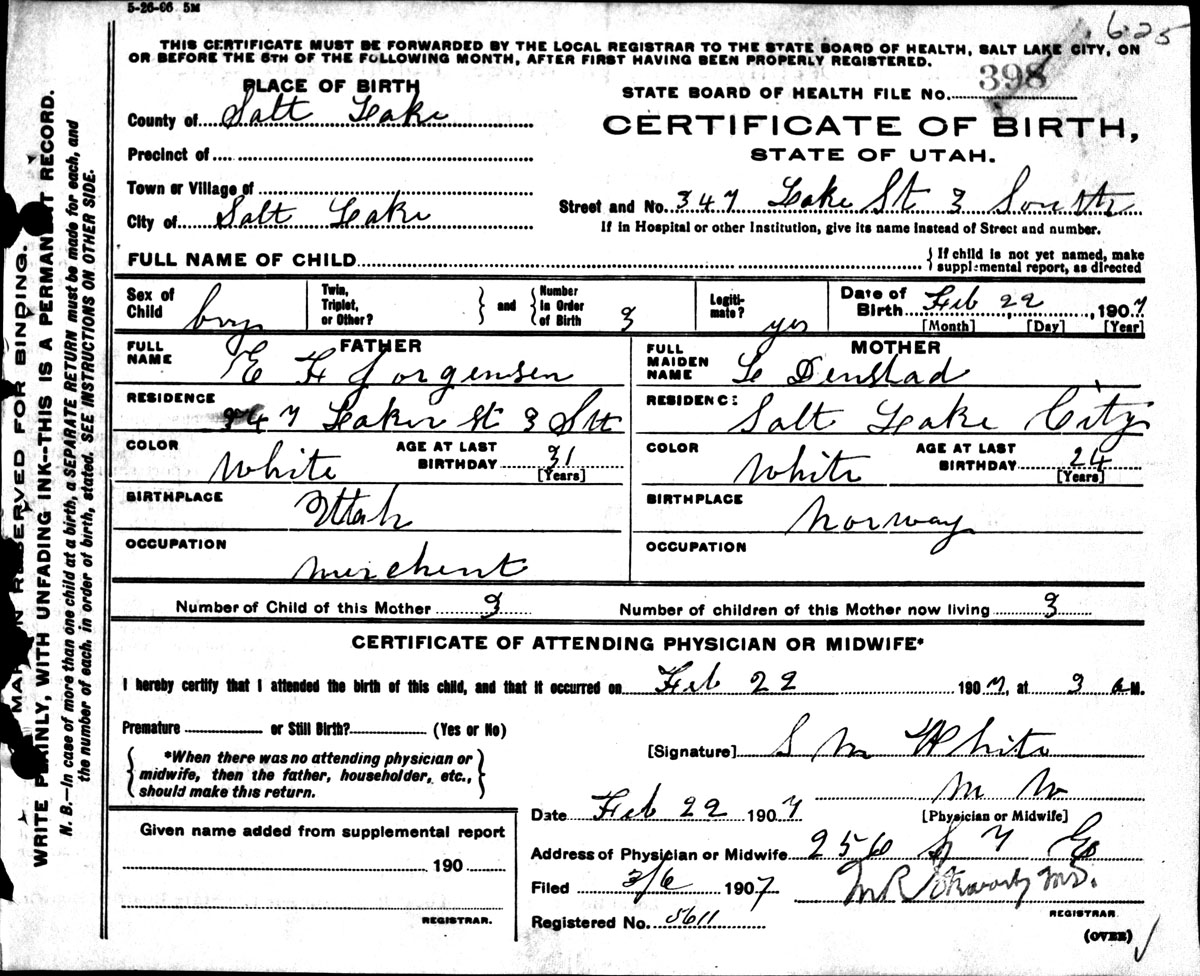 5-26-06 5M
625
THIS CERTIFICATE MUST BE FORWARDED BY THE LOCAL REGISTRAR TO THE STATE BOARD OF HEALTH, SALT LAKE CITY, ON
OR BEFORE THE 5TH OF THE FOLLOWING MONTH, AFTER FIRST HAVING BEEN PROPERLY REGISTERED.
PLACE OF BIRTH
County of Salt Lake
Precinct of
Town or Village of
City of Salt Lake
STATE BOARD OF HEALTH FILE No. 398
CERTIFICATE OF BIRTH,
STATE OF UTAH.
Street and No. 347 Lake St 3 South
If in Hospital or other Institution, give its name instead of Street and number.
FULL NAME OF CHILD
{ If child is not yet named, make
supplemental report, as directed
Sex of Child boy
Twin, Triplet, or Other? } and { Number in Order of Birth 3
Legitimate? yes
Date of Birth Feb 22, 1907
[Month] [Day] [Year]
FATHER
FULL NAME E H Jorgensen
RESIDENCE 347 Lake St 3 Sth
COLOR White
AGE AT LAST BIRTHDAY 31
[Years]
BIRTHPLACE Utah
OCCUPATION merchent
MOTHER
FULL MAIDEN NAME L Denstad
RESIDENCE Salt Lake City
COLOR White
AGE AT LAST BIRTHDAY 24
[Years]
BIRTHPLACE Norway
OCCUPATION
Number of Child of this Mother 3 Number of children of this Mother now living 3
CERTIFICATE OF ATTENDING PHYSICIAN OR MIDWIFE*
I hereby certify that I attended the birth of this child, and that it occurred on Feb 22 1907, at 3 a M.
Premature or Still Birth? (Yes or No)
{ *When there was no attending physician or
midwife, then the father, householder, etc.,
should make this return. }
[Signature] S M White
M W
[Physician or Midwife]
Date Feb 22 1907
Address of Physician or Midwife 256 So 7 Eo
Filed 3/6 1907
M R Stewart M.D.
REGISTRAR
Registered No. 5611
(OVER)
Given name added from supplemental report
190
REGISTRAR.
MARGIN RESERVED FOR BINDING.
WRITE PLAINLY, WITH UNFADING INK--THIS IS A PERMANENT RECORD.
N. B.—In case of more than one child at a birth, a SEPARATE RETURN must be made for each, and
the number of each, in order of birth, stated. SEE INSTRUCTIONS ON OTHER SIDE.